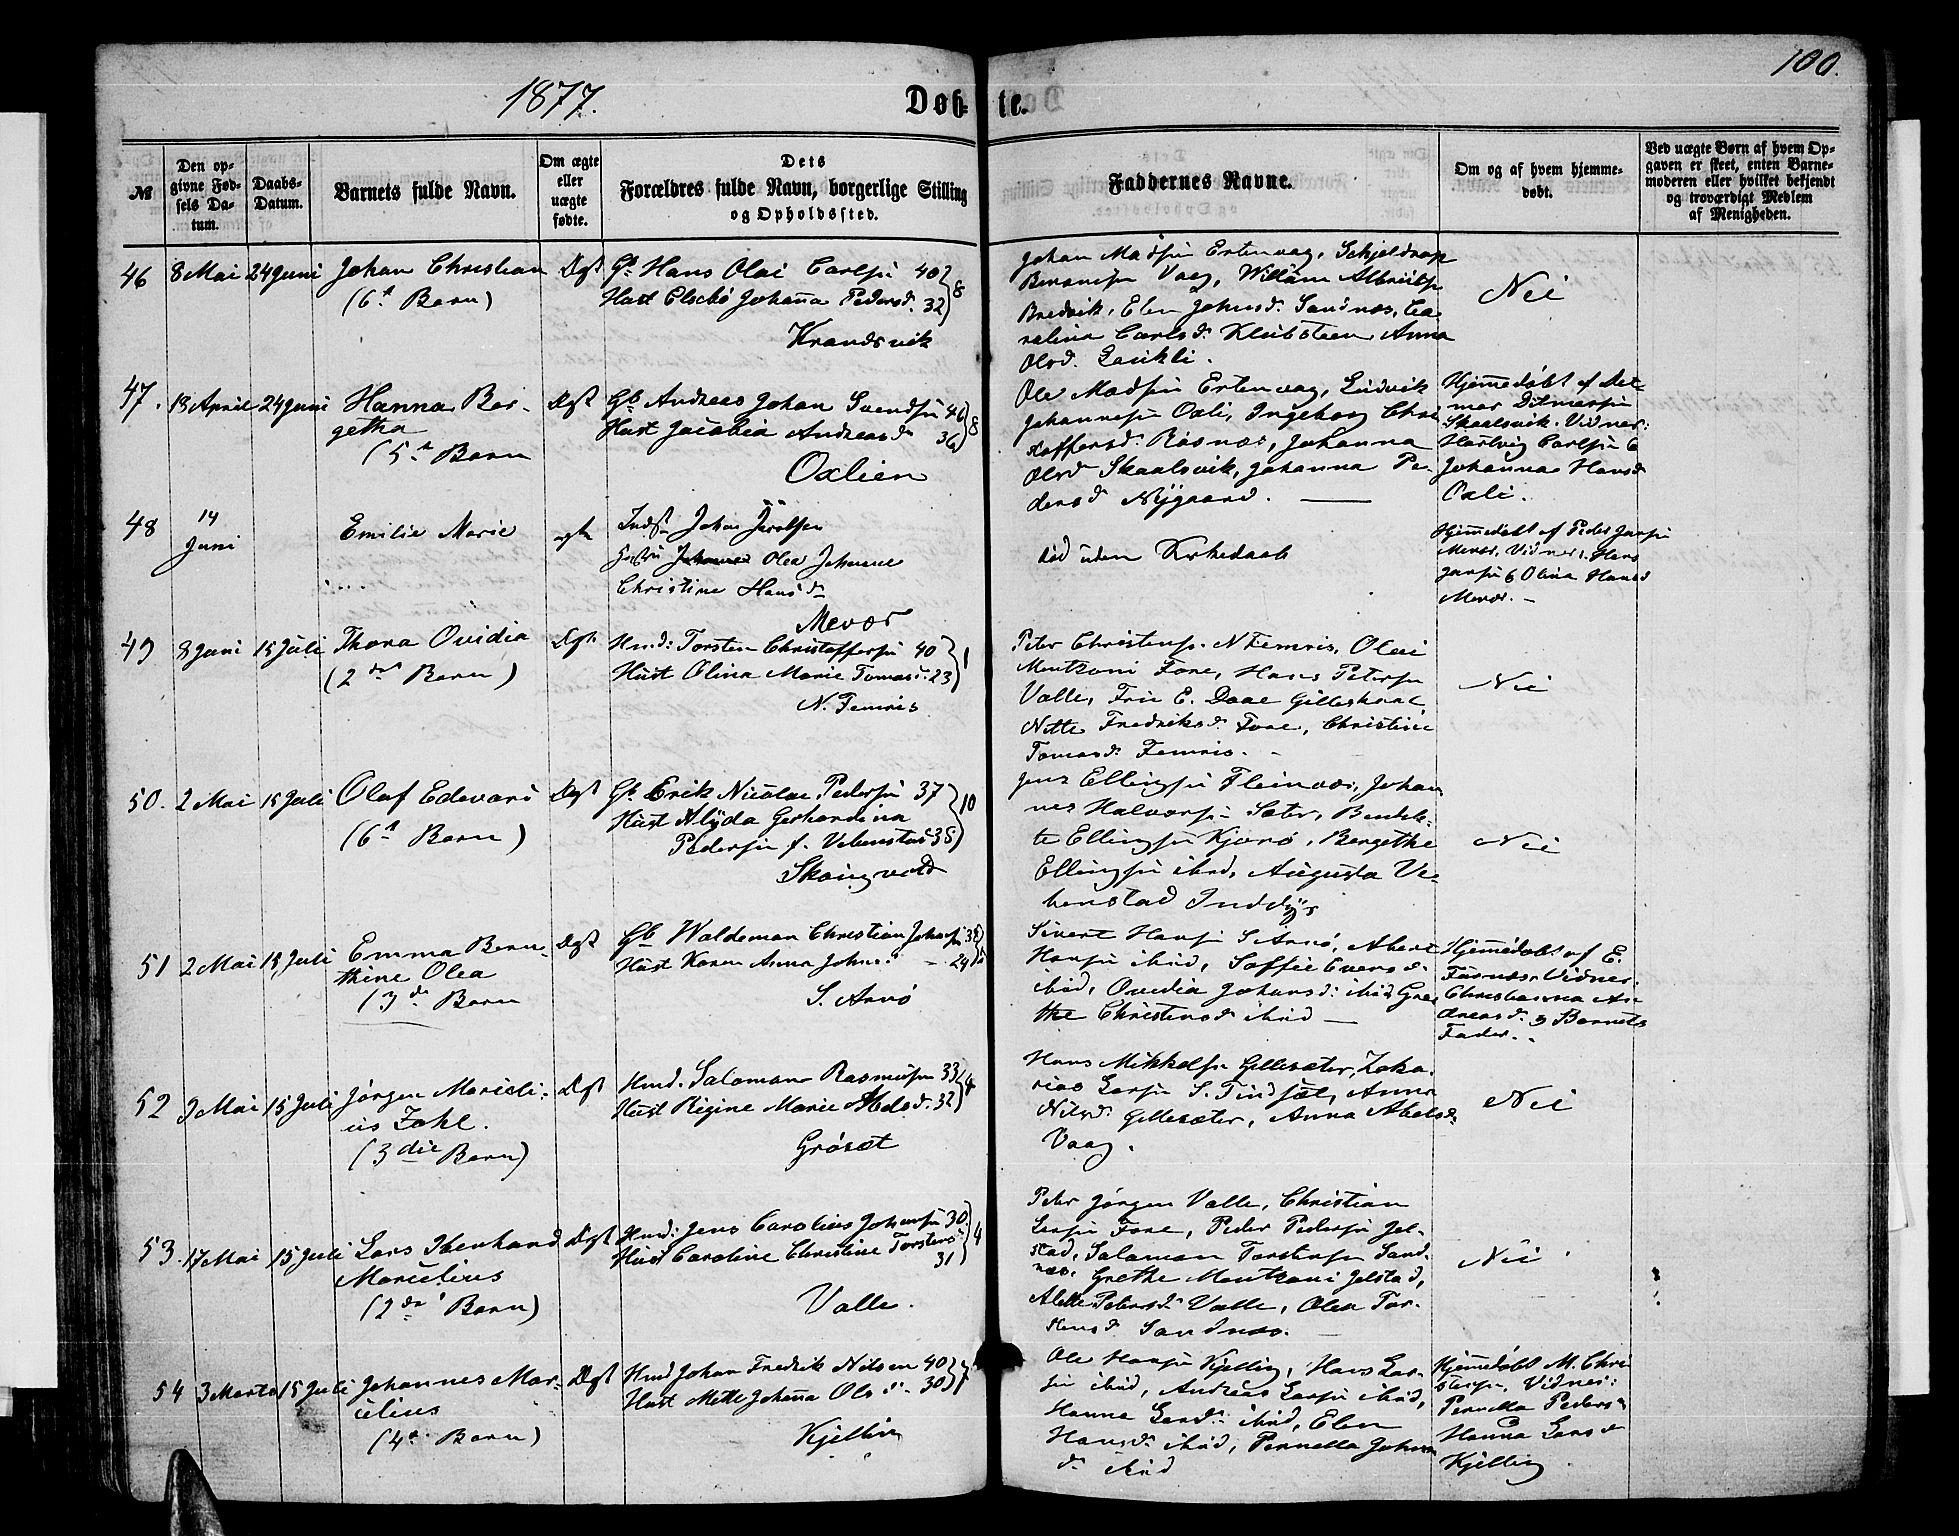 100.
1877.
Døb-te.
№
Den op-
givne Fød-
sels Da-
tum.
Daabs-
Datum.
Barnets fulde Navn.
Om ægte
eller
uægte
fødte.
Dets
Forældres fulde Navn, borgerlige Stilling
og Opholdssted.
Faddernes Navne.
Om og af hvem hjemme-
døbt.
Ved uægte Børn af hvem Op-
gaven er skeet, enten Barne-
moderen eller hvilket bekjendt
og troværdigt Medlem
af Menigheden.
46 8 Mai 24 Juni Johan Christian
(6te Barn)
Gb. Hans Olai Carlsen 40
Hust Johanna Pedersd. 32
8
Johan Madsen Ertenvag,
Vaag, Albrigtsen
Bredvik, Elen Johnsd. Sandnæs, Ca-
rolina Carlsd. Anna
Olsd.
Nei
47. 18 April 24 Juni Hanna Ber-
getha
(5te Barn
Gb. Andreas Johan Svendsen 46
Hust Jacobia Andreasd 36
8
Oxlien
Ole Madsen Ertenvag, Ludvik
Johannesen Oxli, Ingeborg Chri
stoffersd. Røsnæs, Johanna
Olsd Skaalsvik, Johanna Pe-
dersd Nygaard.
Hjemmedøbt af Det-
mer Ditmersen
Skaalsvik. Vidner:
Hartvig Carlsen &
Johanna Hansd
Oxli.
48 14
Juni
Emilie Marie
Indst Johan
Hustru Olea Johanne
Christine Hansd
Mevær
død uden Kirkedaab
Hjemmedøbt af Peder Jansen
Mevær, Vidner: Hans
Jansen & Olina Hansd
Mevær. –
49 8 Juni 15 Juli Thora Ovidia
(2det Barn)
Hmd: Torsten Christoffersen 40
Hust Olina Marie Tomasd. 23
1
N. Femris
Peter Christens. N Femris, Olai
Mentzoni Fore, Hans Petersen
Valle, Fru E. Daae Gilleskaal,
Nette Fredriksd Fore, Christine
Tomasd. Femris. –
Nei
50. 2 Mai 15 Juli Olaf Edevard
(6te Barn)
Gb. Erik Nicolai Pedersen 37
Hust Alyda Gerhardina
Pedersen f. Vebenstad 35
10
Skaugvold
Jens Ellingsen Fleinvær, Johan
nes Halvorsen Sæter, Bendik-
te Ellingsen Kjærø, Bergethe
Ellingsen ibid, Augusta Ve-
benstad Inddyr
Nei
51 2 Mai 15 Juli Emma Bern-
thine Olea
(3de Barn
Gb Waldemar Christian Johnsen
Hust Karen Anna Johnsd – 24
S. Arnø
Sivert Hansen S Arnø, Albert
Hansen ibid, Soffie Eversd.
ibid, Ovedia Johansd: ibid Gre-
the Christensd ibid –
Hjemmedøbt af E.
Furnæs. Vidner.
Christianna An-
dreasd. & Barnets
Fader. .
52 9 Mai 15 Juli Jørgen Marseli-
us Zahl.
(3die Barn)
Hmd. Salomon Rasmusen 33
Hust Regine Marie Abelsd. 32
4
Grøsæt
Hans Mikkelsen Gillesæter, Zaka-
rias Larsen S. Finsæt, Anna
Nilsd. Gillesæter, Anna Abelsd.
Vaag.
Nei
53. 17 Mai 15 Juli Lars Iberhard
Marcelius
(2det Barn)
Hmd. Jens Carolius Johansen 30
Hust Caroline Christine Torstensd
31
4
Valle.
Peter Jørgen Valle, Christian
Larsen Fore, Peder Pedersen Jel-
stad, Salomon Torstensen Sand-
næs. Grethe Mentzoni Jelstad,
Alette Petersd Valle, Olea Tor-
stensd Sandnæs. –
Nei
54 3 Marts 15 Juli Johannes Mar-
celius
(4de Barn)
Hmd Johan Fredrik Nilsen 40
Hust Mette Johanna Olsd. 30
7
Kjelling
Ole Hansen Kjelling, Hans Lar-
sen ibid, Andreas Larsen ibid,
Hanna Larsd: ibid, Elen
Hansd. ibid, Pernella Johan
d. ibid
Hjemmedøbt M. Chri
stensen. Vidner:
Pernella Pedersd
Hanna Larsd
Kjelling.